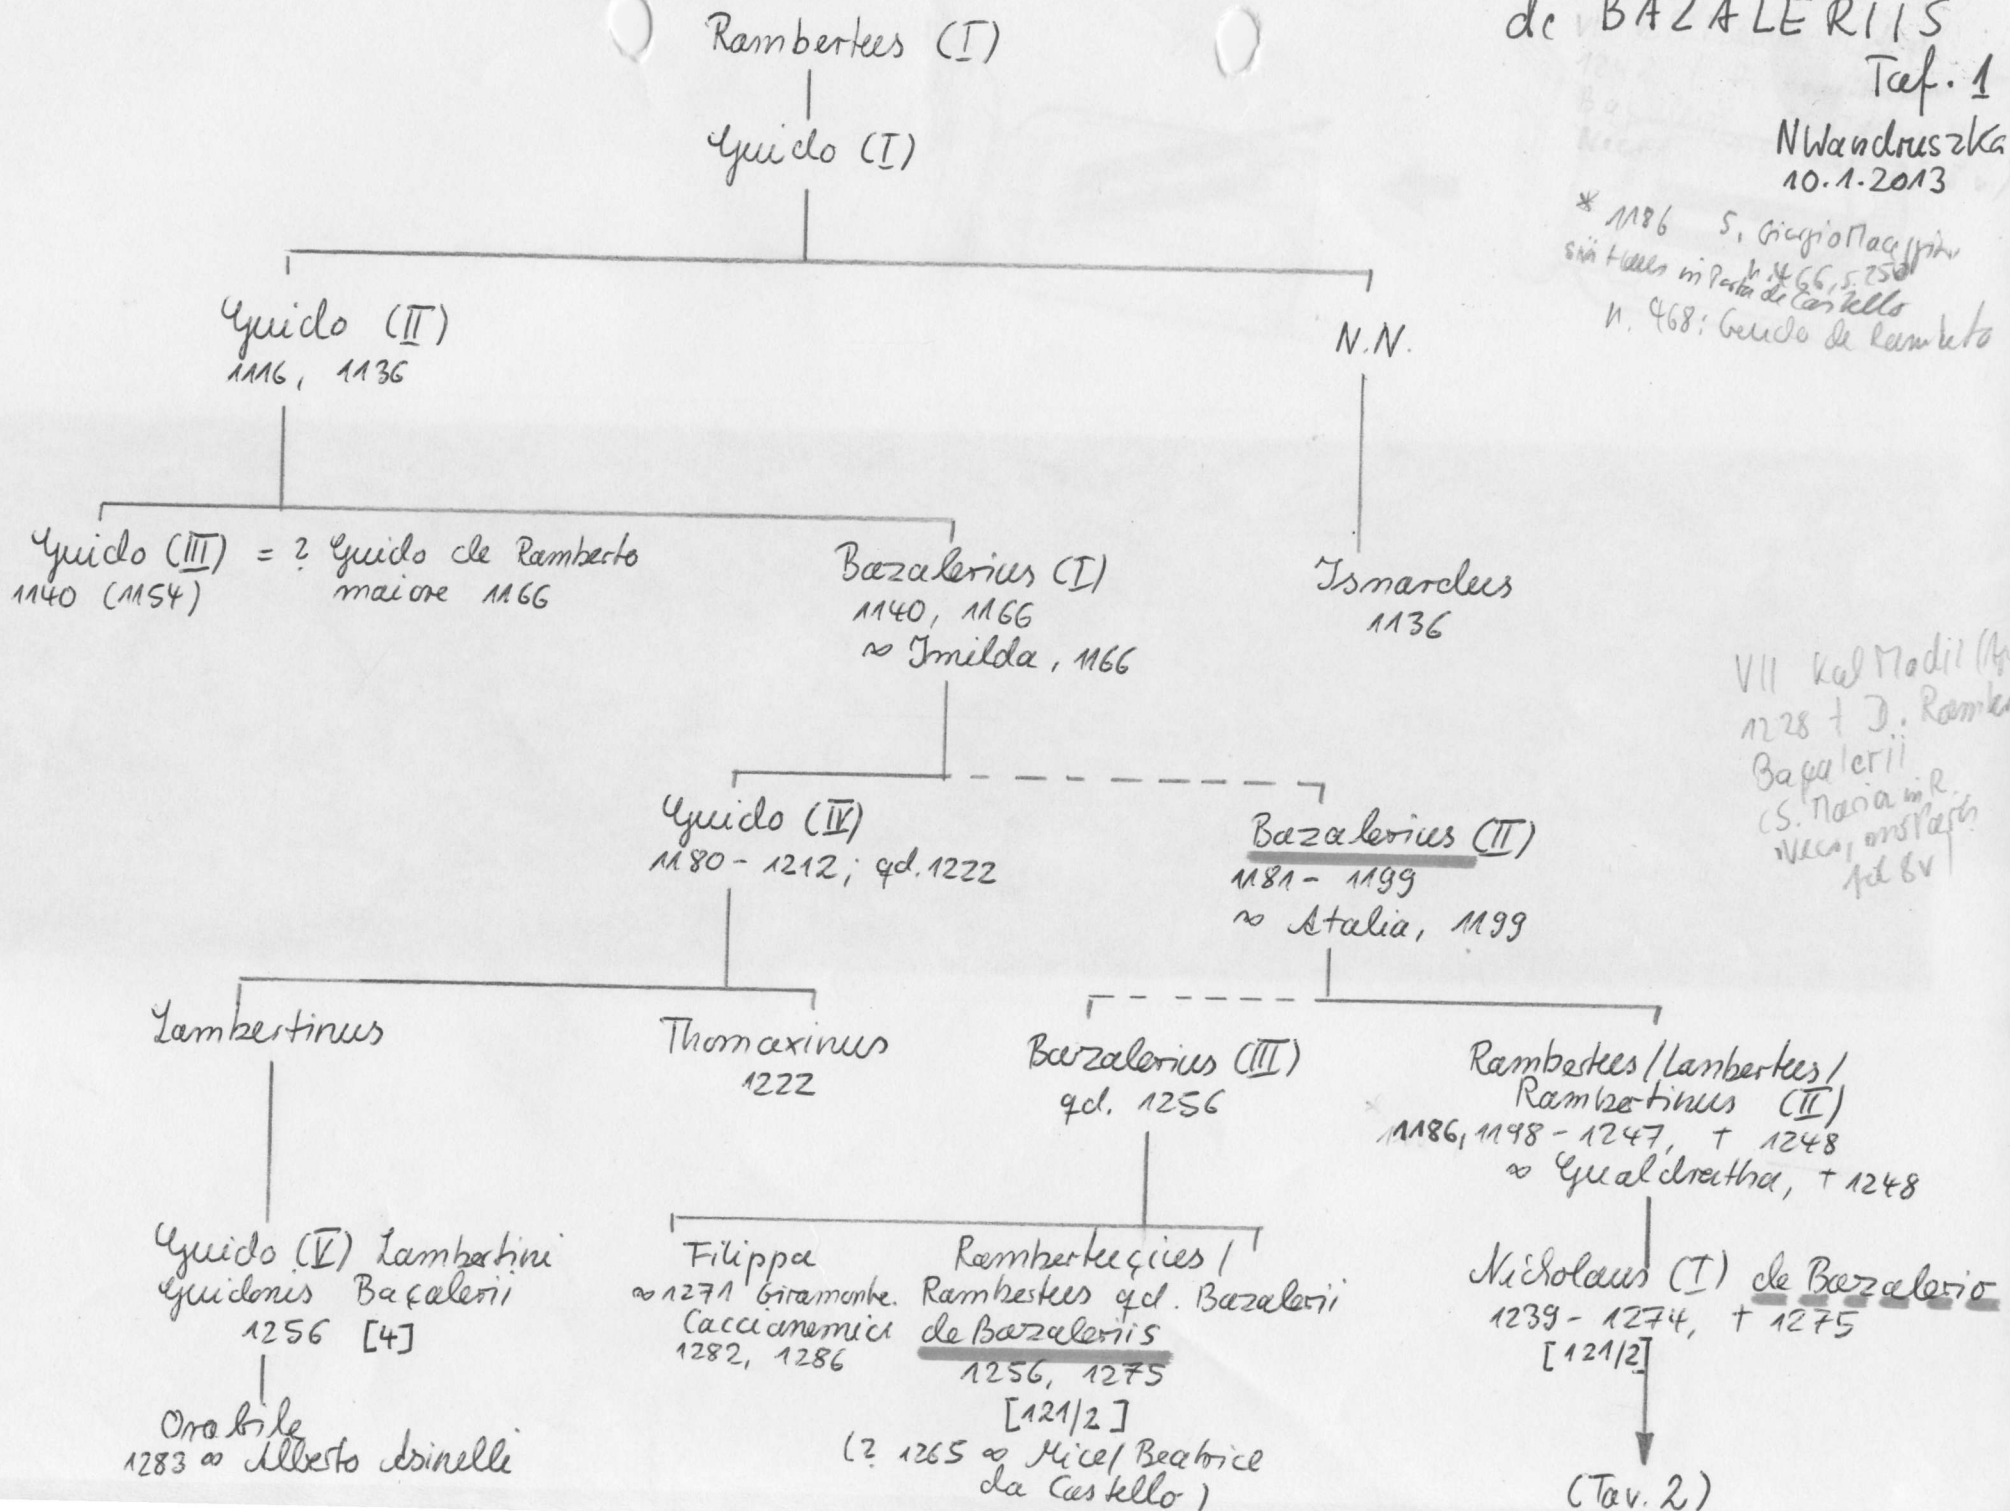 de BAZALERIIS
Taf. 1
NWandruszka
10.1.2013
* 1186 S. Giorgio
n. 466, S. 250
in Porta de Castello
n. 468: Guido de Ramberto
Rambertus (I)
Guido (I)
Guido (II)
1116, 1136
N.N.
Guido (III) = ? Guido de Ramberto
1140 (1154) maiore 1166
Bazalerius (I)
1140, 1166
∞ Imilda, 1166
Isnardus
1136
VII Kal Madii
1228 † D.
Baçalerii
(S. Maria in R.
fol 8v
Guido (IV)
1180 - 1212; qd. 1222
Bazalerius (II)
1181 - 1199
∞ Atalia, 1199
Lambertinus
Thomaxinus
1222
Bazalerius (III)
qd. 1256
Rambertus/Lambertus/
Rambertinus (II)
1186, 1198 - 1247, † 1248
∞ Gualdratha, † 1248
Guido (V) Lambertini
Guidonis Baçalerii
1256 [4]
Filippa
∞ 1271 Giramonte.
Caccianemici
1282, 1286
Rambertuçius/
Rambertus qd. Bazalerii
de Bazaleriis
1256, 1275
[121/2]
(? 1265 ∞ Misel/Beatrice
da Castello)
Nicholaus (I) de Bazalerio
1239 - 1274, † 1275
[121/2]
Orabile
1283 ∞ Alberto Asinelli
(Tav. 2)